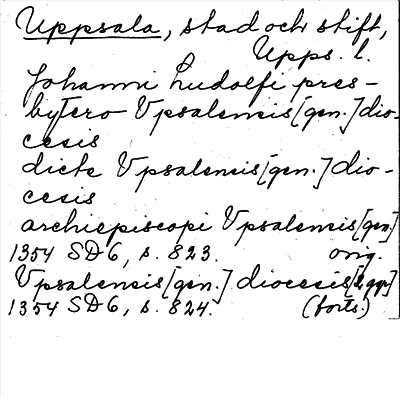 Uppsala, stad och stift,
Upps. l.
Johanni Ludolfi pres-
bytero Vpsalensis [gen.] dio-
cesis
dicte Vpsalensis [gen.] dio-
cesis
archiepiscopi Vpsalensis [gen.]
1354 SD6, s. 823. orig.
Vpsalensis [gen.] diocesis [2 ggr]
1354 SD6, s. 824. (forts.)